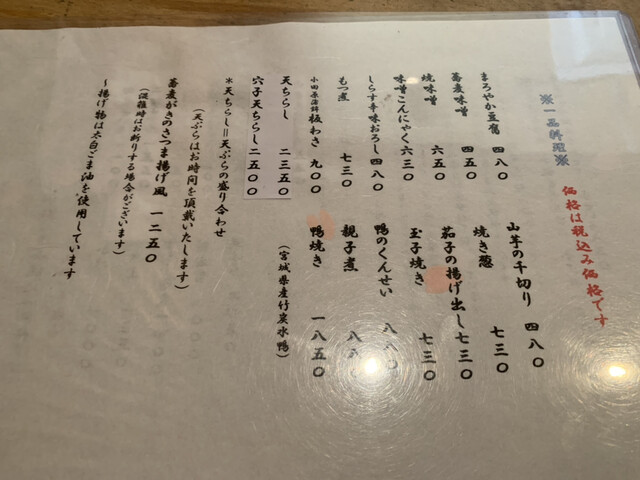 ※一品料理※
価格は税込み価格です
まろやか豆腐 四八〇
蕎麦味噌 四五〇
焼味噌 六五〇
味噌こんにゃく 六三〇
しらす辛味おろし 四八〇
もつ煮 七三〇
小田原蒲鉾 板わさ 九〇〇
天ちらし 二三五〇
穴子天ちらし 二五〇〇
山芋の千切り 四八〇
焼き葱 七三〇
茄子の揚げ出し 七三〇
玉子焼き 七三〇
鴨のくんせい 八八〇
親子煮 八八〇
鴨焼き 一八五〇
(宮城県産竹炭水鴨)
※天ちらし＝天ぷらの盛り合わせ
(天ぷらはお時間を頂戴いたします)
蕎麦がきのさつま揚げ風 一二五〇
(混雑時はお断りする場合がございます)
～揚げ物は太白ごま油を使用しています